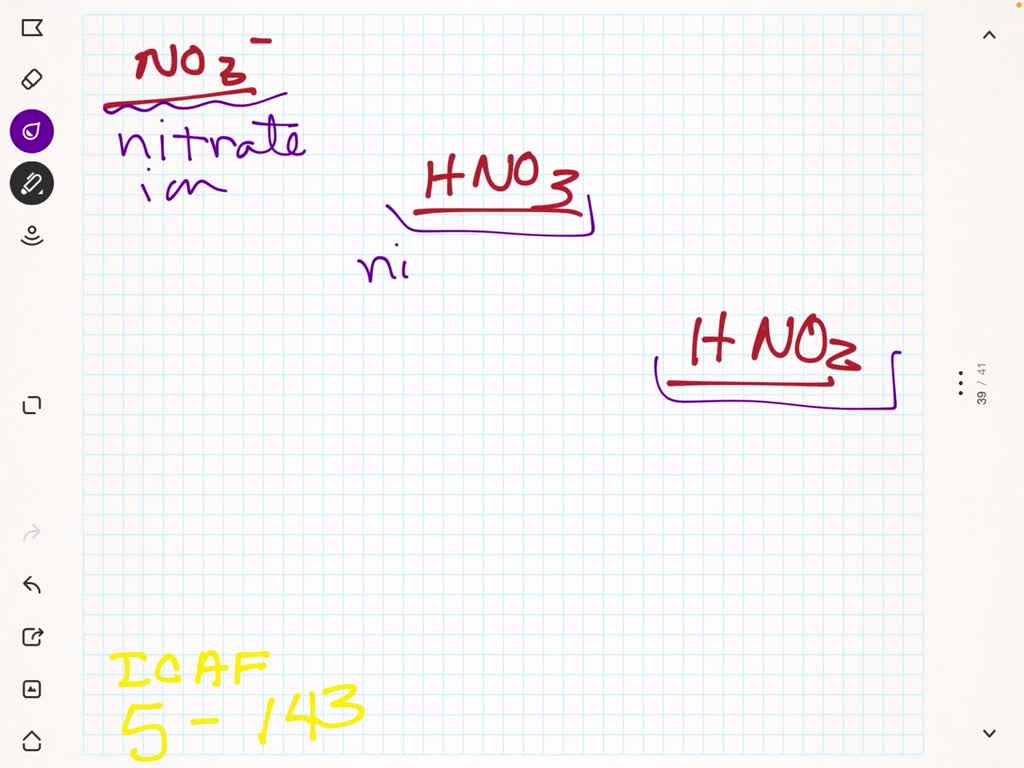 NO₃⁻
nitrate
ion
HNO₃
ni
HNO₂
39 / 41
ICAF
5-143